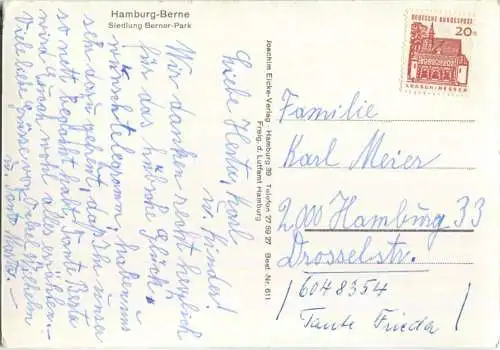 Hamburg-Berne
Siedlung Berner-Park
Liebe Herta, Karl
u. Kinder!
Wir danken recht herzlich
für das hübsche Glück-
wunschtelegramm, haben uns
sehr dazu gefreut, daß Ihr unser
so nett gedacht habt, Tante Berta
wird Euch wohl alles erzählen.-
Viele liebe Grüße von Onkel Wilhelm
u. Tante
Joachim Eicke-Verlag · Hamburg 39 Telefon 27 69 27 Best.-Nr. 611
Freig. d. Luftamt Hamburg
DEUTSCHE BUNDESPOST
20
LORSCH · HESSEN
Familie
Karl Meier
2000 Hamburg 33
Drosselstr.
6048354
Tante Frieda